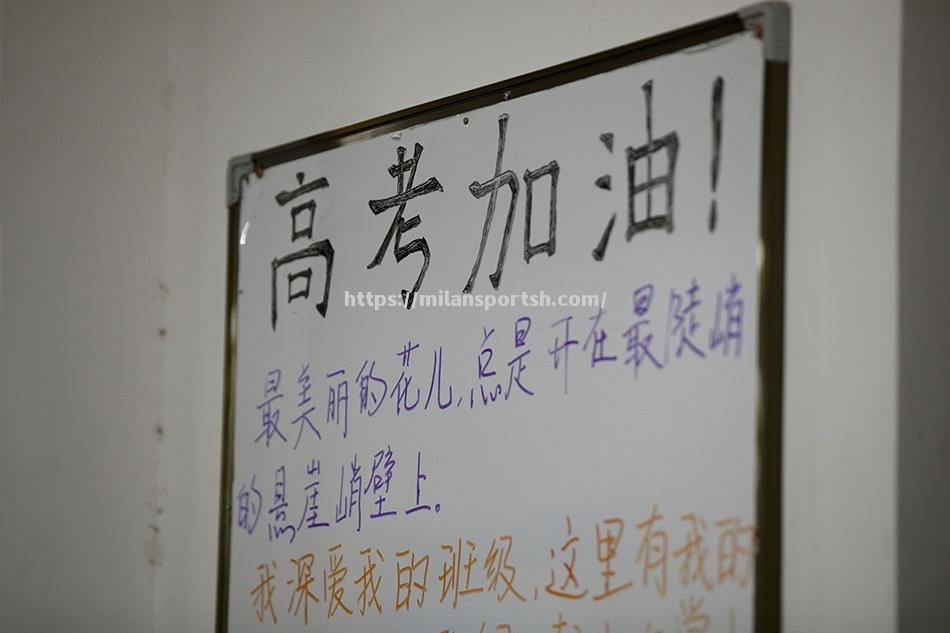 高考加油!
https://milansportsh.com/
最美丽的花儿,总是开在最陡峭
的悬崖峭壁上。
我深爱我的班级,这里有我的